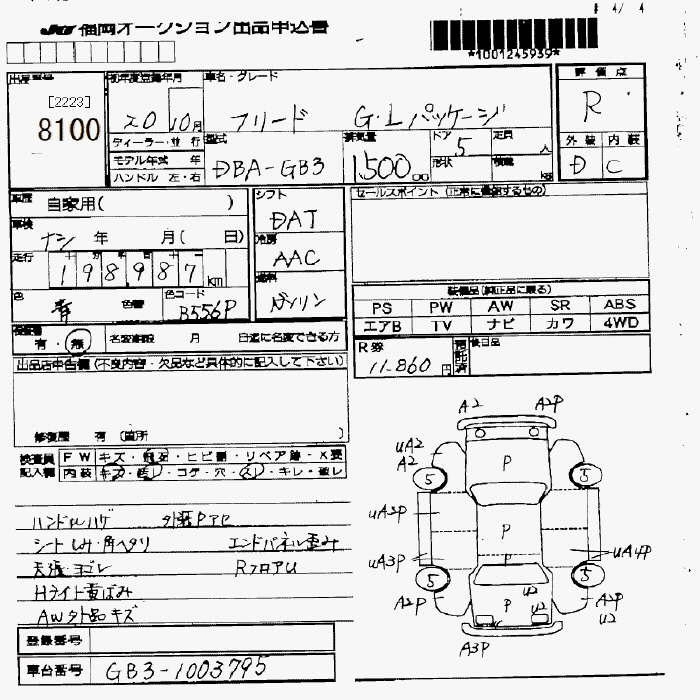 JU 福岡オークション出品申込書
*1001245939*
出品番号 初年度登録年月 車名・グレード 評価点
[2223]
8100
20 10月 フリード G・Lパッケージ R
ディーラー・並行 型式 排気量 ドア 定員 外装 内装
モデル年式 年 DBA-GB3 1,500 cc 5 人 D C
ハンドル 左・右 形状 積載 kg
車歴 自家用( ) シフト セールスポイント (正常に機能するもの)
DAT
車検 ナシ 年 月( 日) 冷房
AAC
走行 198987km 燃料
ガソリン
色 青 色替 色コード B556P
装備品(純正品に限る)
PS PW AW SR ABS
エアB TV ナビ カワ 4WD
保証書 有・無 名変期限 月 日迄に名変できる方
R券 11,860円 預託済 後日品
出品店申告欄 (不良内容・欠品など具体的に記入して下さい)
修復歴 有 (箇所 )
検査員 FW キズ・飛石・ヒビ割・リペア跡・X要
記入欄 内装 キズ・汚レ・コゲ・穴・スレ・キレ・破レ
ハンドルハゲ 外装Pアセ
シートしみ・角ヘタリ エンドパネル歪み
天張・ヨゴレ RフロアU
Hライト黄ばみ
AW外品キズ
登録番号
車台番号 GB3-1003795
A2 A2P
UA2
A2 P
5 5
UA3P
P
UA3P P UA4P
5 5
A2P P U2 U2 A2P
U2
A3P